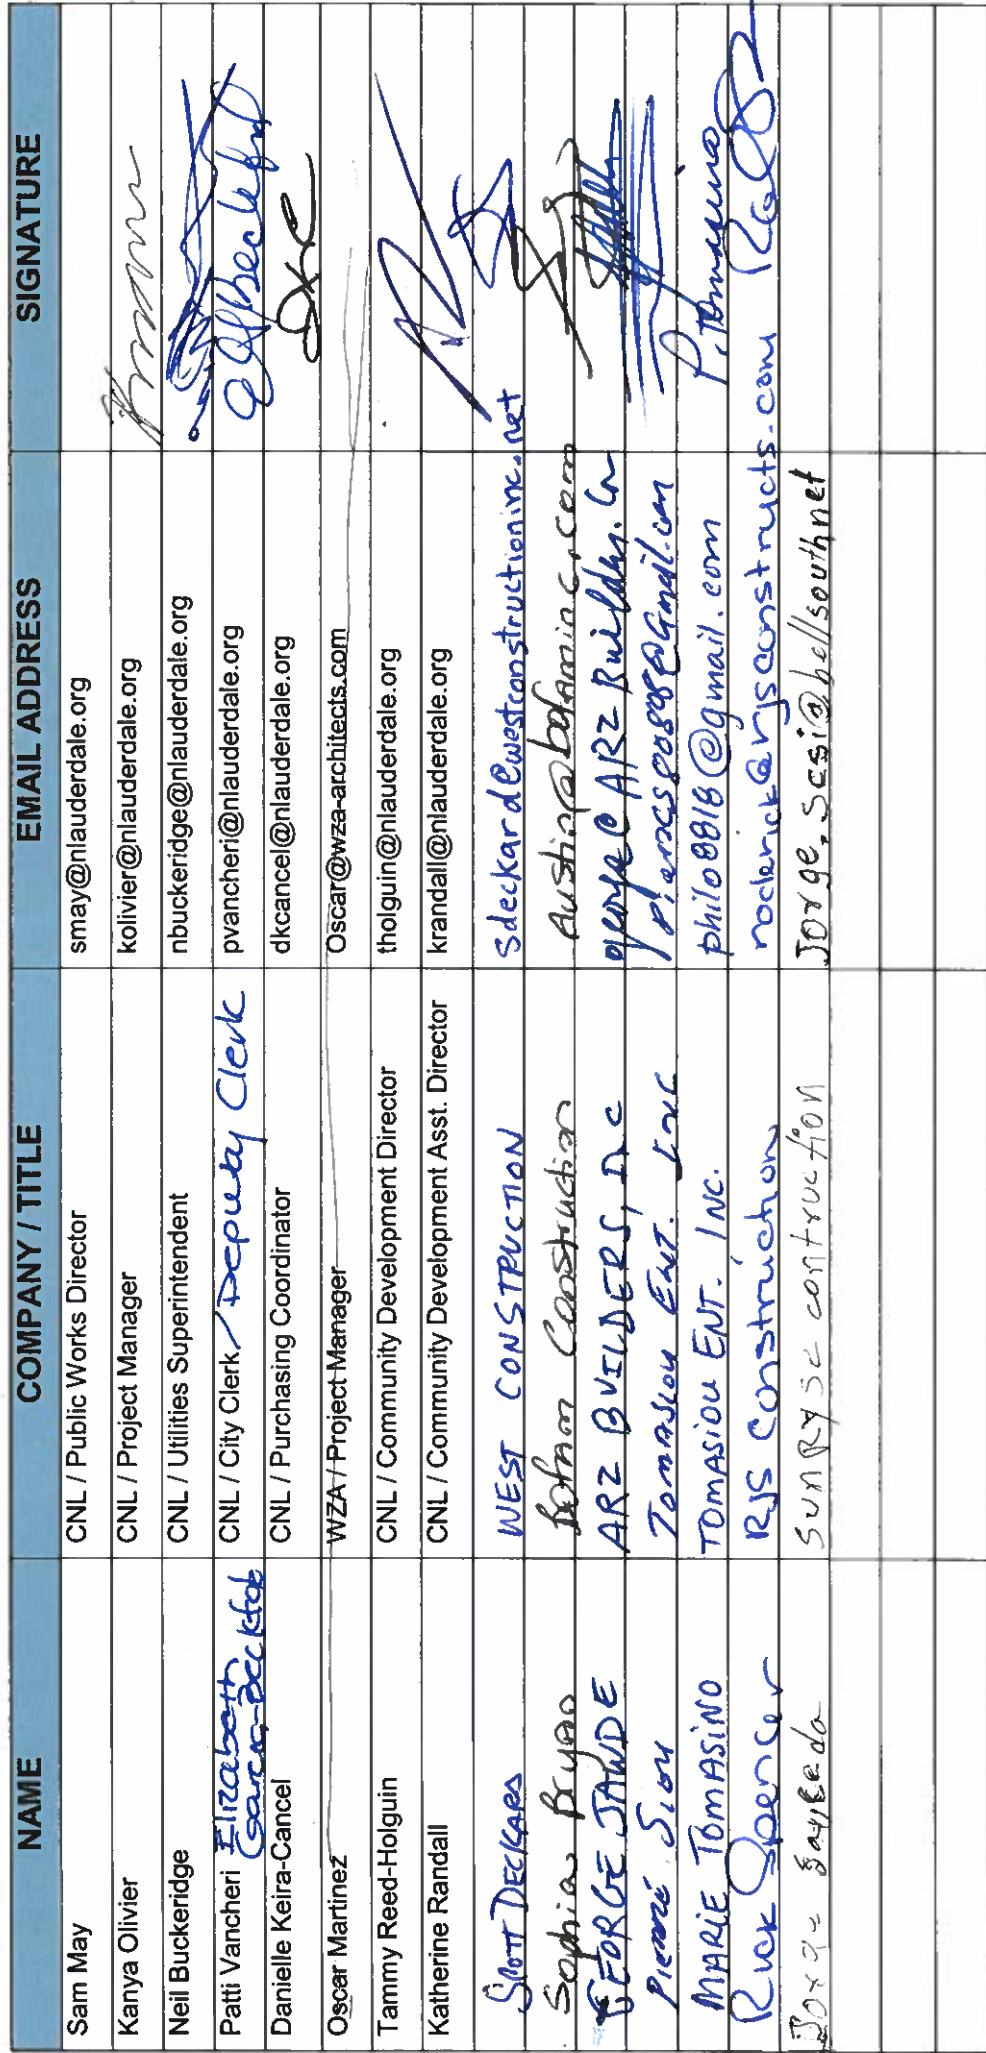 NAME COMPANY / TITLE EMAIL ADDRESS SIGNATURE
Sam May CNL / Public Works Director smay@nlauderdale.org
Kanya Olivier CNL / Project Manager kolivier@nlauderdale.org
Neil Buckeridge CNL / Utilities Superintendent nbuckeridge@nlauderdale.org
Patti Vancheri Elizabeth Garcia-Beckford CNL / City Clerk / Deputy Clerk pvancheri@nlauderdale.org
Danielle Keira-Cancel CNL / Purchasing Coordinator dkcancel@nlauderdale.org
Oscar Martinez WZA / Project Manager Oscar@wza-architects.com
Tammy Reed-Holguin CNL / Community Development Director tholguin@nlauderdale.org
Katherine Randall CNL / Community Development Asst. Director krandall@nlauderdale.org
Scott DECKARD WEST CONSTRUCTION Sdeckard@westconstructioninc.net
Sophia Bryan Construction
GEORGE JAWDE ARZ BUILDERS, Inc george@ARZBuilders.
Pierre Sion Tomasiou ENT. INC
MARIE TOMASINO TOMASIOU ENT. INC. philo8818@gmail.com P. Tomasino
Rick Spencer RJS Construction roderick@rjsconstructs.com
Jorge sunryse contruction Jorge.scsi@bellsouthnet